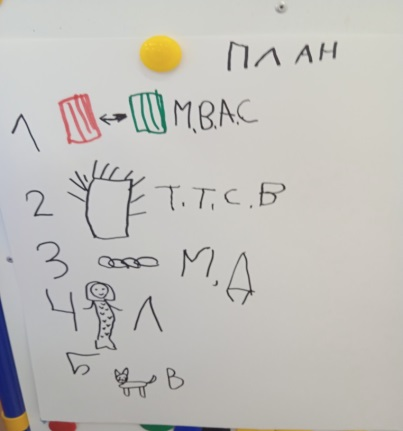 ПЛАН
1 М.В.А.С
2 Т.Т.С.В
3 М.Д
4 Л
5 В